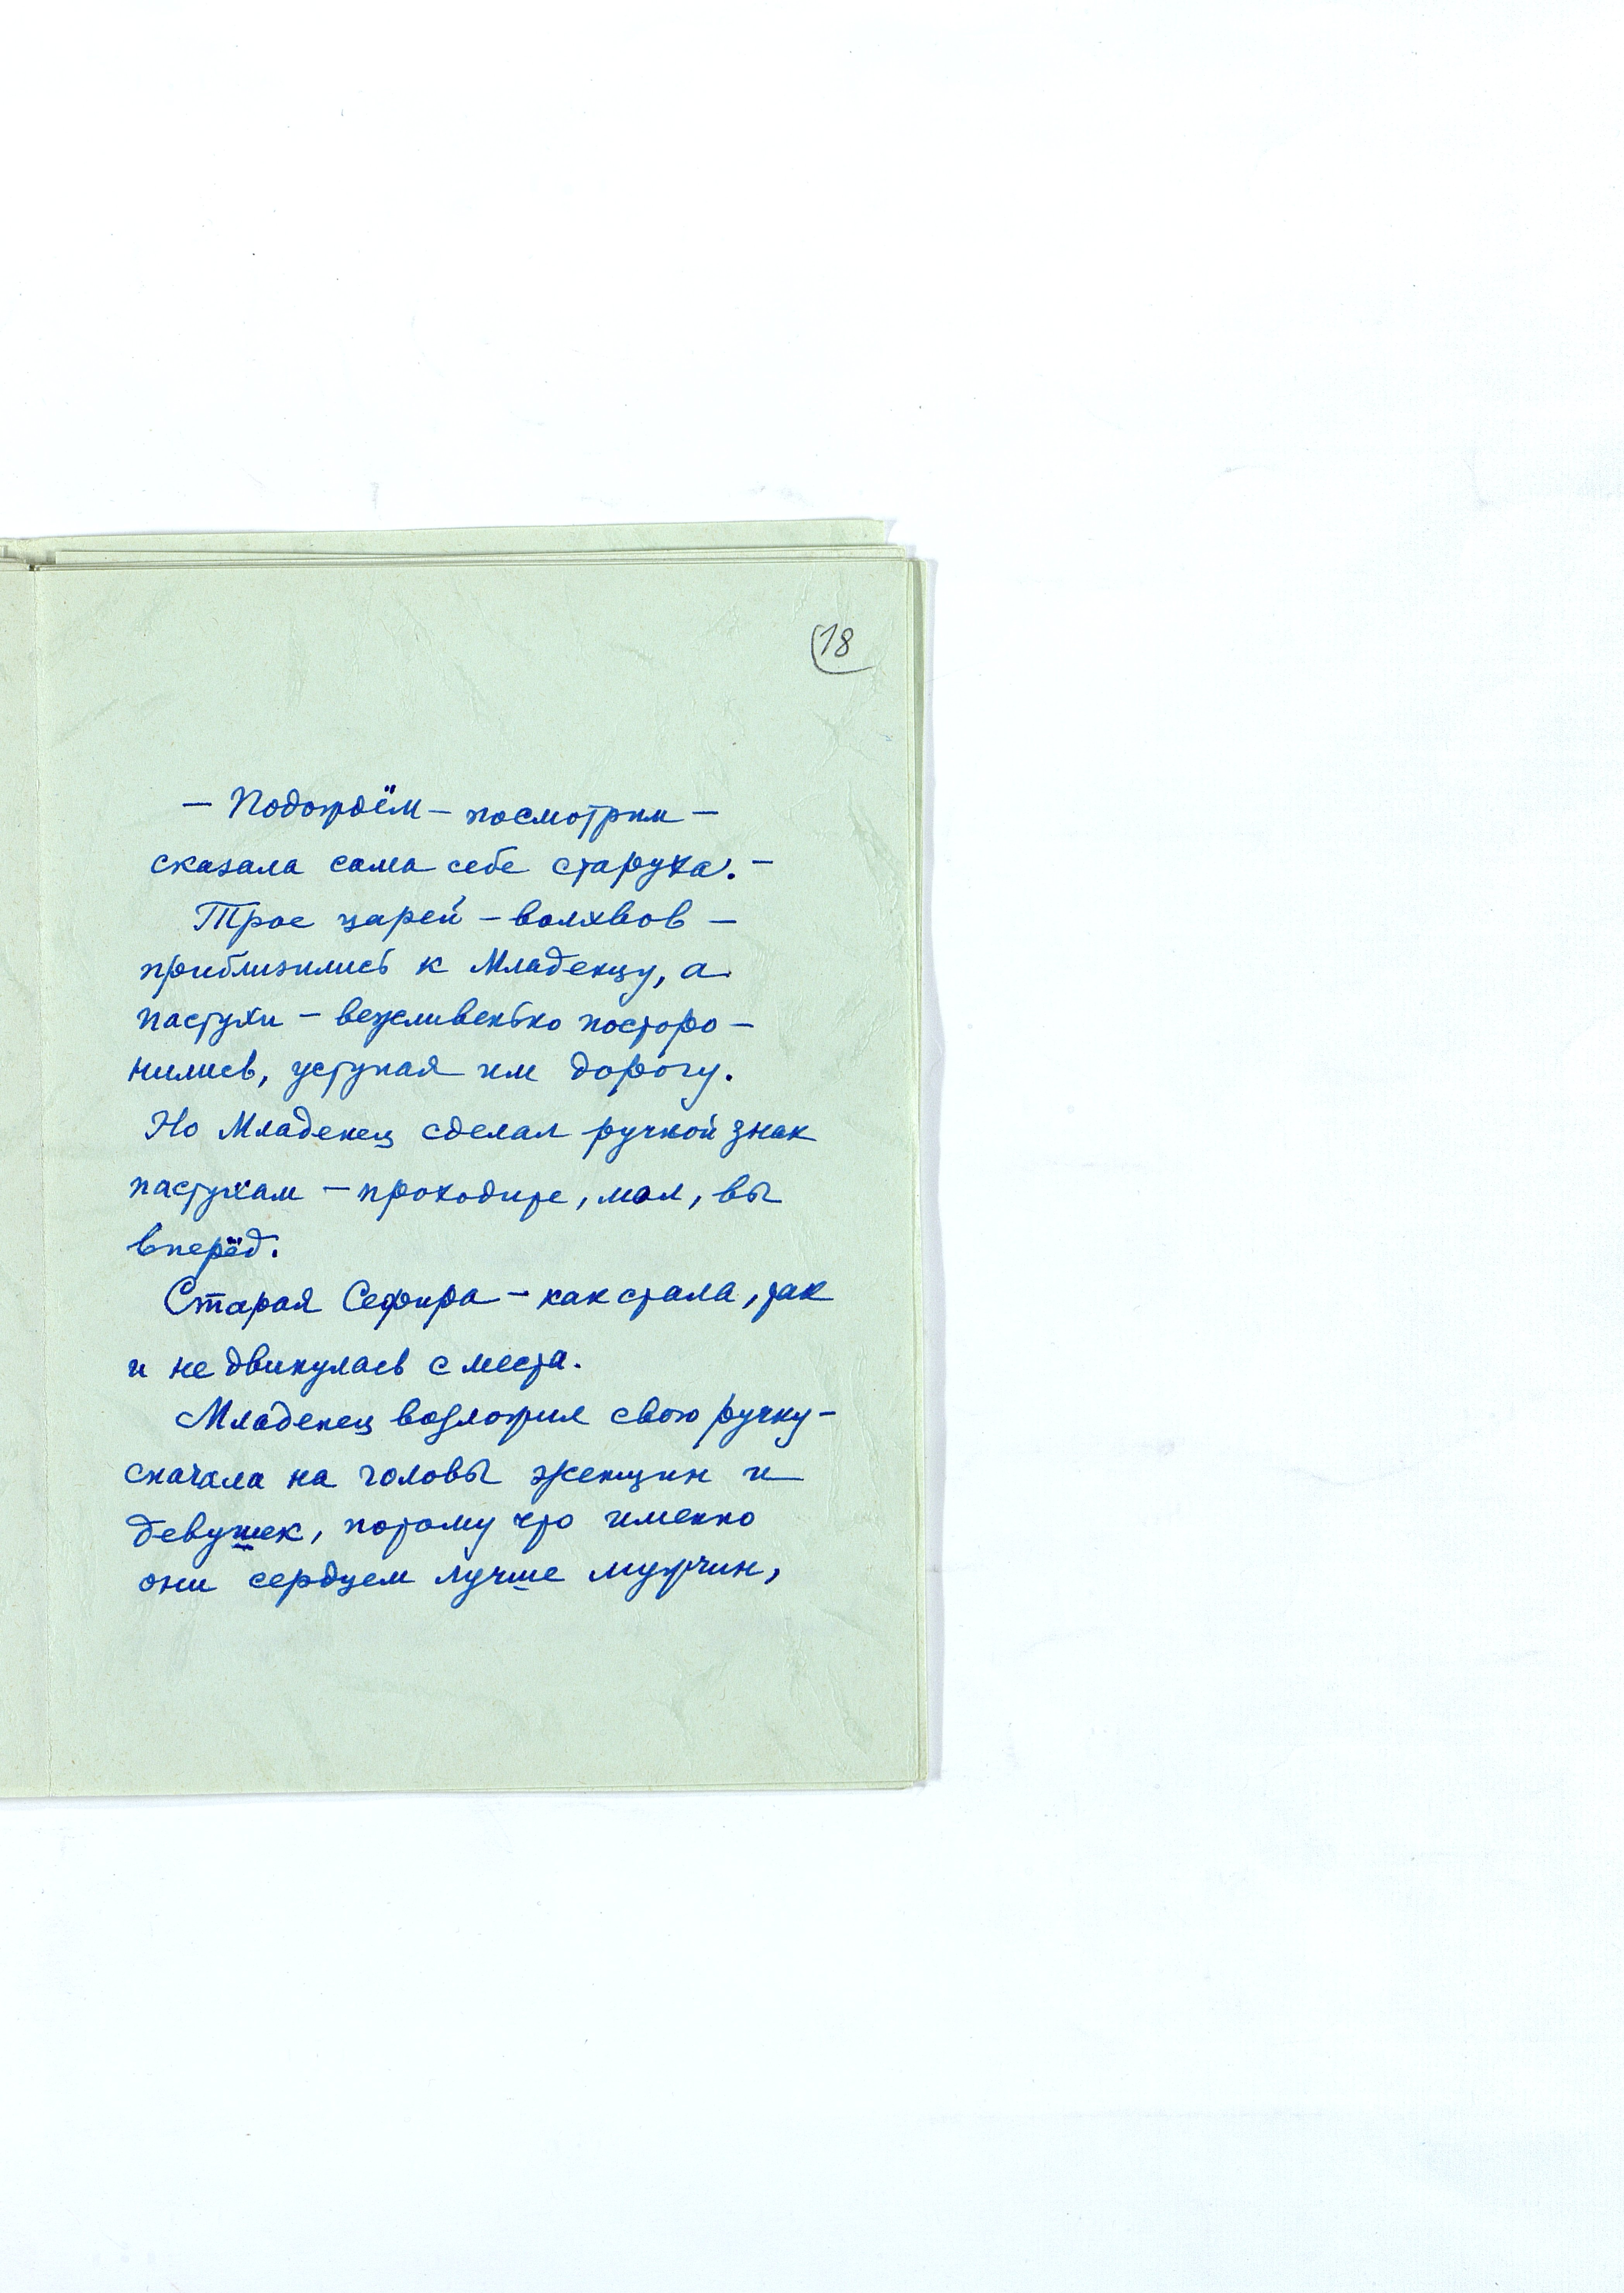 18
— Подождём — посмотрим —
сказала сама себе старуха. —
Трое царей — волхвов —
приблизились к Младенцу, а
пастухи — вежливенько посторо-
нились, уступая им дорогу.
Но Младенец сделал ручкой знак
пастухам — проходите, мол, вы
вперёд.
Старая Сефира — как стала, так
и не двинулась с места.
Младенец возложил свою ручку —
сначала на головы женщин и
девушек, потому что именно
они сердцем лучше мужчин,